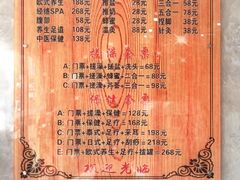 欧式养生 188元 推盐 58元 三合一 58元
经络SPA 268元 推奶 28元 五合一 78元
搜部 58元 蜂蜜 38元
养生足道 108元 温灸 针灸 38元
中医保健 138元
搓澡套票
A: 门票+搓澡+搓盐+洗头=68元
B: 门票+搓澡+蜂蜜+二合一=88元
C: 门票+搓澡+丹参+三合一=98元
保健套票
A: 门票+搓澡+保健=128元
B: 门票+保健+足疗=168元
C: 门票+泰式+足疗+采耳=198元
D: 门票+日式+足疗+刮痧=218元
E: 门票+欧式养生+足疗+拔罐=268元
欢迎光临